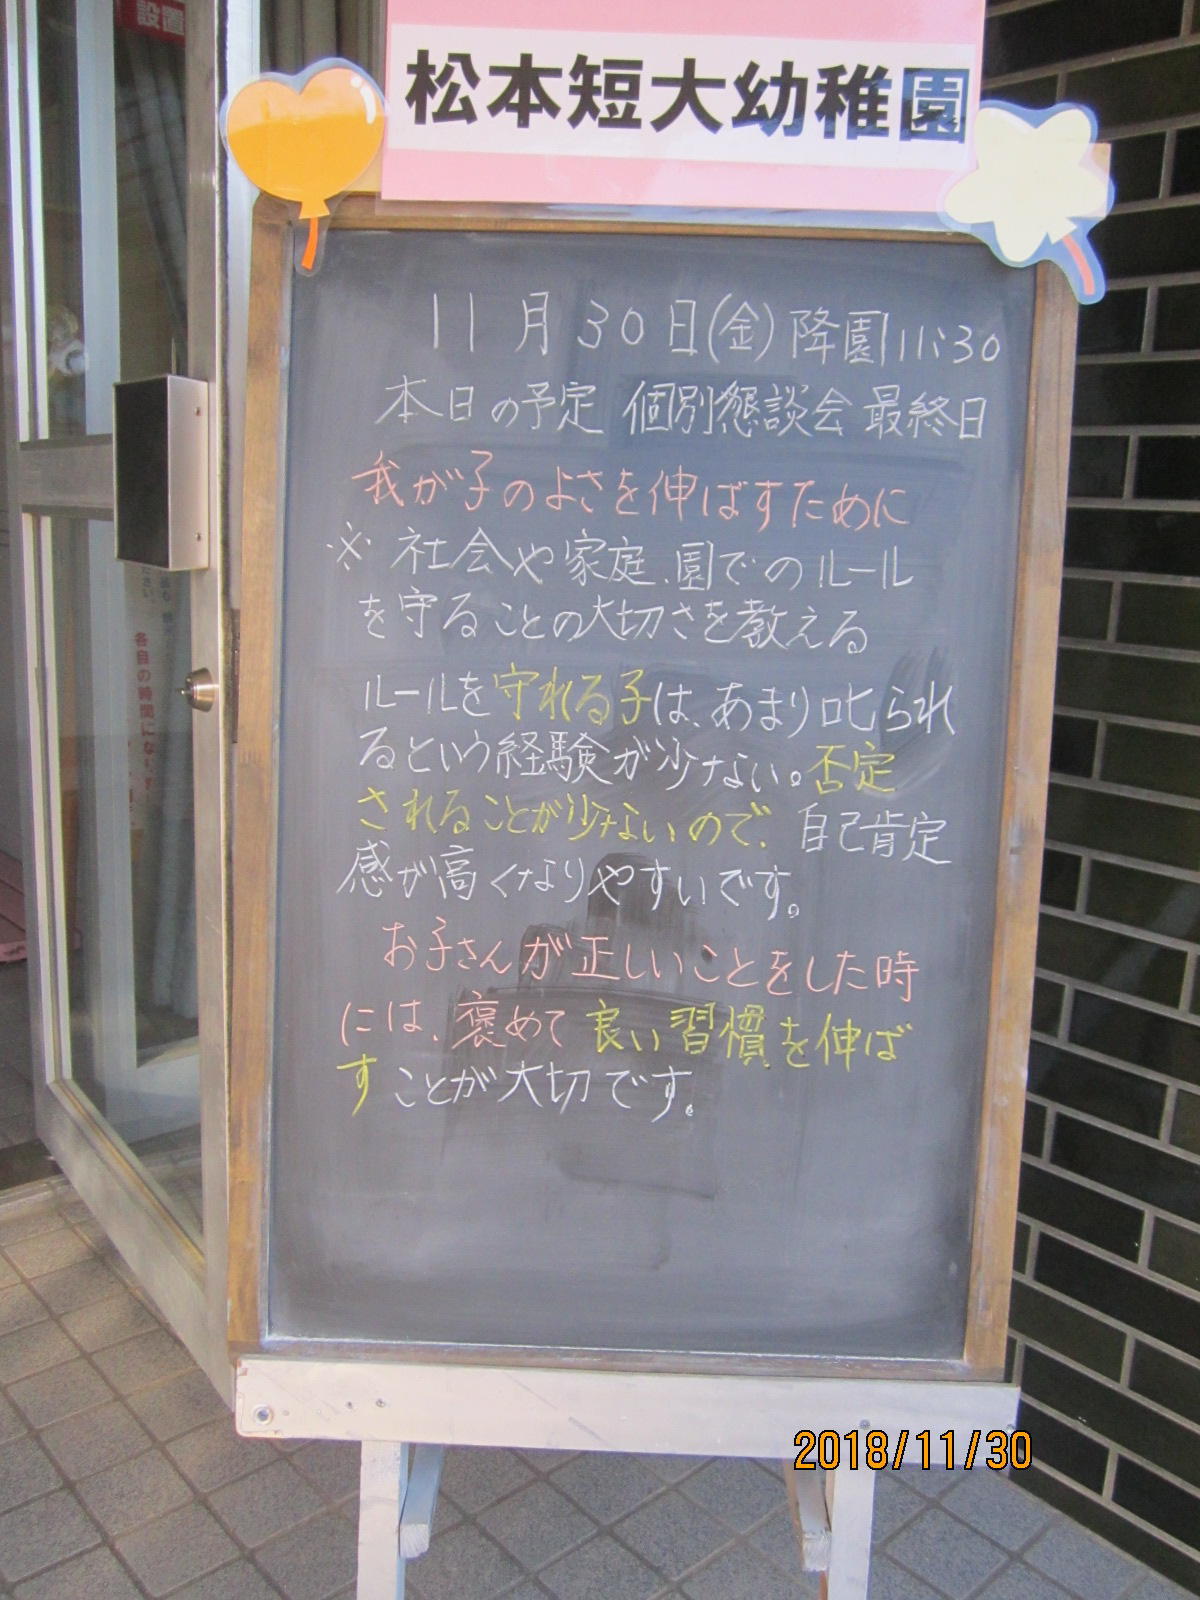 設置
松本短大幼稚園
11月30日(金)降園11:30
本日の予定 個別懇談会 最終日
我が子のよさを伸ばすために
※ 社会や家庭、園でのルール
を守ることの大切さを教える
ルールを守れる子は、あまり叱られ
るという経験が少ない。否定
されることが少ないので、自己肯定
感が高くなりやすいです。
お子さんが正しいことをした時
には、褒めて良い習慣を伸ば
すことが大切です。
各自の時間になります
2018/11/30